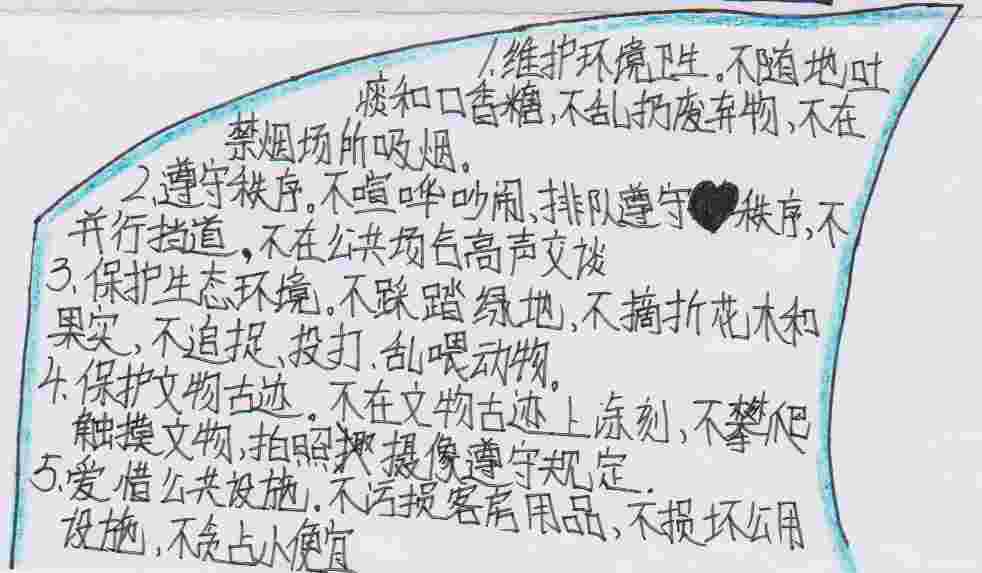 1.维护环境卫生。不随地吐
痰和口香糖,不乱扔废弃物、不在
禁烟场所吸烟。
2、遵守秩序。不喧哗吵闹、排队遵守秩序,不
并行挡道,不在公共场合高声交谈
3、保护生态环境。不踩踏绿地、不摘折花木和
果实,不追捉、投打、乱喂动物。
4、保护文物古迹。不在文物古迹上涂刻,不攀爬
触摸文物,拍照摄像遵守规定.
5、爱惜公共设施。不污损客房用品、不损坏公用
设施,不贪占小便宜